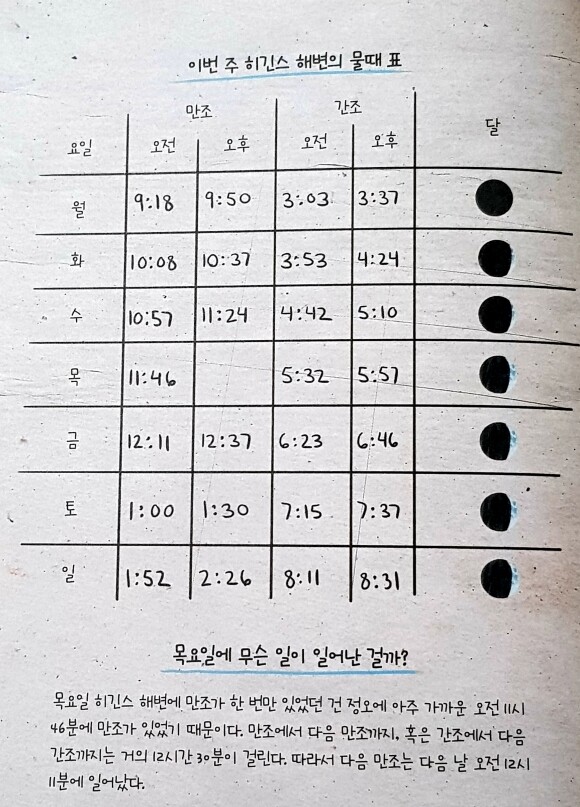 이번 주 히긴스 해변의 물때 표
만조 간조
요일 오전 오후 오전 오후 달
월 9:18 9:50 3:03 3:37
화 10:08 10:37 3:53 4:24
수 10:57 11:24 4:42 5:10
목 11:46 5:32 5:57
금 12:11 12:37 6:23 6:46
토 1:00 1:30 7:15 7:37
일 1:52 2:26 8:11 8:31
목요일에 무슨 일이 일어난 걸까?
목요일 히긴스 해변에 만조가 한 번만 있었던 건 정오에 아주 가까운 오전 11시
46분에 만조가 있었기 때문이다. 만조에서 다음 만조까지, 혹은 간조에서 다음
간조까지는 거의 12시간 30분이 걸린다. 따라서 다음 만조는 다음 날 오전 12시
11분에 일어났다.